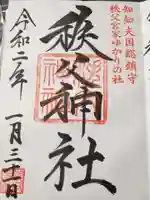 知知夫国総鎮守
秩父宮家ゆかりの社
秩父神社
令和二年
一月三十一日